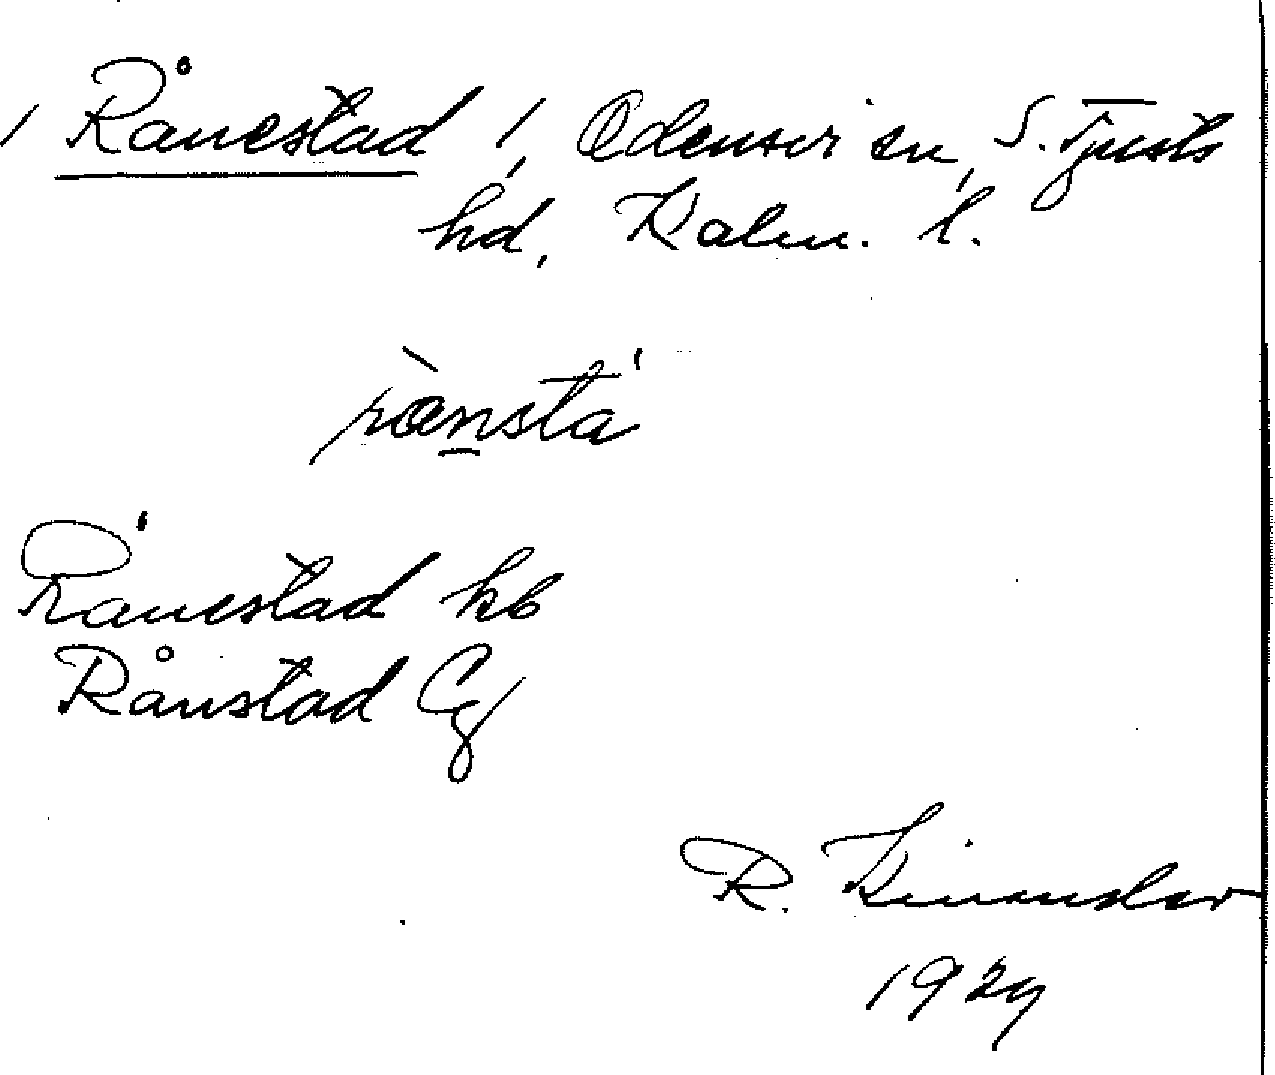 / Rånestad /, Odensvi sn, S. Tjusts
hd, Kalm. l.
Rånestad kb
Rånstad Cg
R. Kinander
1929